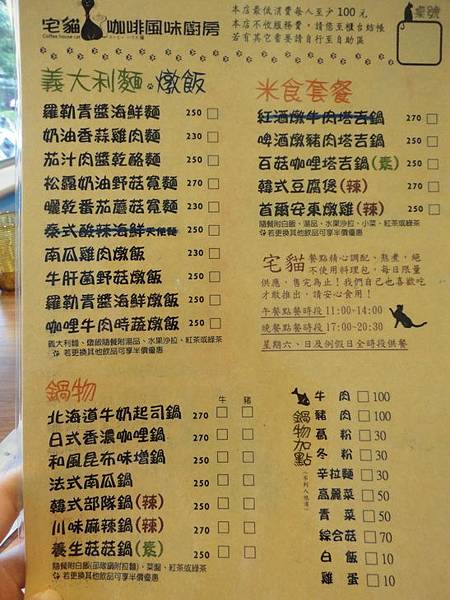 宅貓咖啡風味廚房
Coffee house cat
本店最低消費每人至少100元
本店不收服務費，請您至櫃台結帳
若有其它需要請自行至自助區
桌號
義大利麵．燉飯
羅勒青醬海鮮麵 250 □
奶油香蒜雞肉麵 250 □
茄汁肉醬乾酪麵 250 □
松露奶油野菇寬麵 270 □
曬乾番茄蘑菇寬麵 230 □
泰式酸辣海鮮天使麵 250 □
南瓜雞肉燉飯 230 □
牛肝菌野菇燉飯 250 □
羅勒青醬海鮮燉飯 250 □
咖哩牛肉時蔬燉飯 250 □
義大利麵、燉飯隨餐附湯品、水果沙拉、紅茶或綠茶
若更換其他飲品可享半價優惠
米食套餐
紅酒燉牛肉塔吉鍋 270 □
啤酒燉豬肉塔吉鍋 250 □
百菇咖哩塔吉鍋(素) 250 □
韓式豆腐煲(辣) 250 □
首爾安東燉雞(辣) 250 □
隨餐附白飯、湯品、水果沙拉、小菜、紅茶或綠茶
若更換其他飲品可享半價優惠
宅貓 餐點精心調配、熬煮，絕
不使用料理包，每日限量
供應，售完為止！我們自己也喜歡吃
才敢推出，請安心食用！
午餐點餐時段11:00-14:00
晚餐點餐時段17:00-20:30
星期六、日及例假日全時段供餐
鍋物
牛 豬
北海道牛奶起司鍋 270 □ □
日式香濃咖哩鍋 270 □ □
和風昆布味增鍋 250 □ □
法式南瓜鍋 250 □ □
韓式部隊鍋(辣) 270 □ □
川味麻辣鍋(辣) 270 □ □
養生菇菇鍋(素) 250 □
隨餐附白飯(部隊鍋附拉麵)、菜盤、紅茶或綠茶
若更換其他飲品可享半價優惠
鍋物加點
牛肉 □100
豬肉 □100
葛粉 □30
冬粉 □30
辛拉麵 □30
高麗菜 □50
青菜 □50
綜合菇 □70
白飯 □10
雞蛋 □10